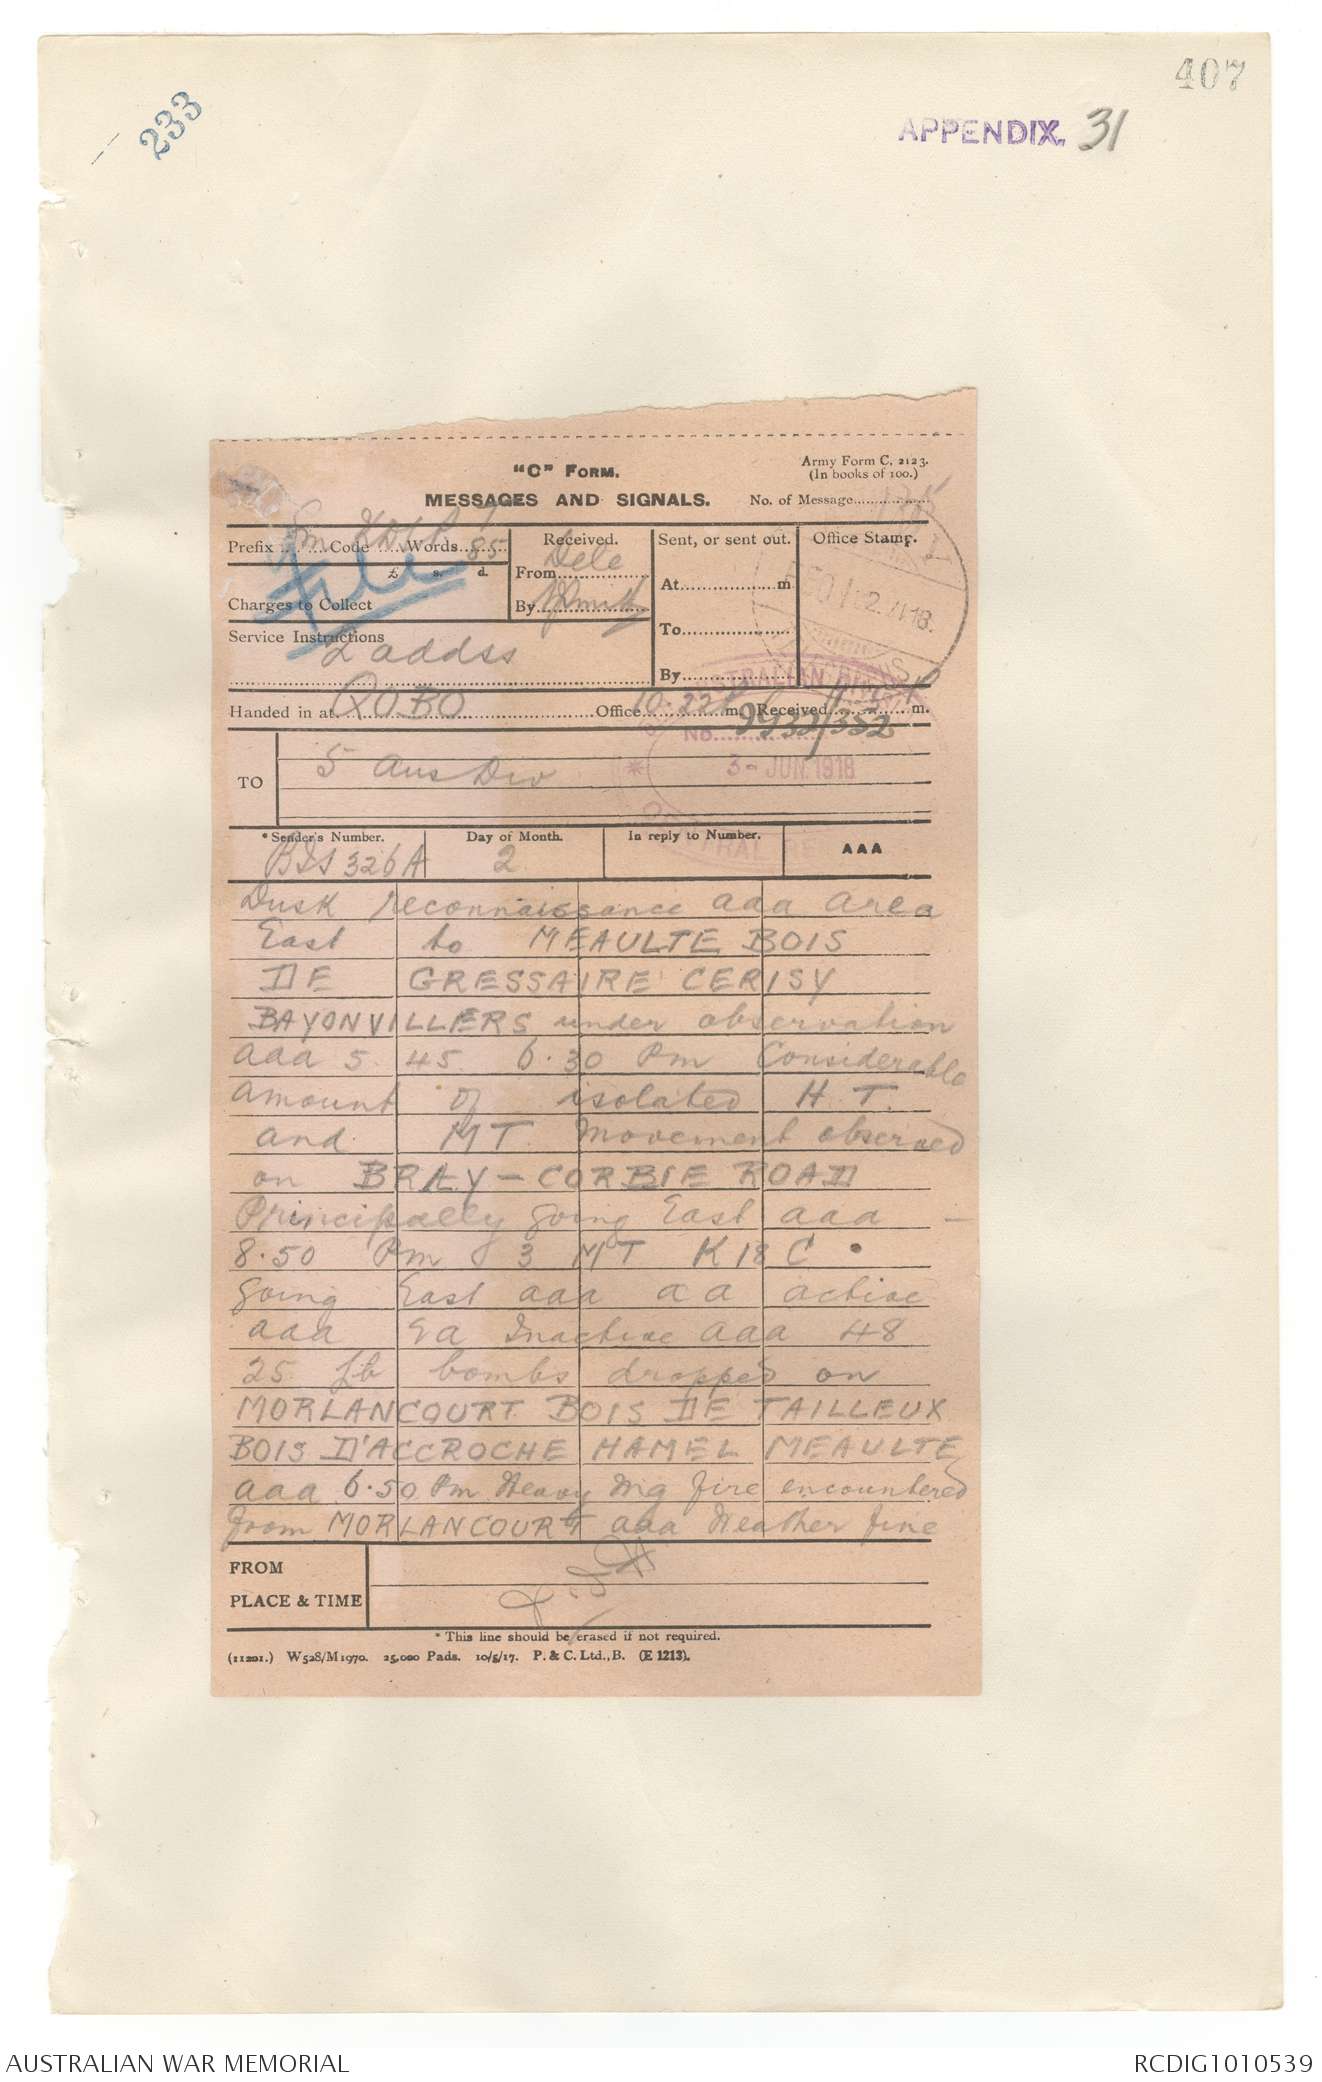 407
233
APPENDIX. 31
"C" FORM.
Army Form C. 2123.
(In books of 100.)
MESSAGES AND SIGNALS.
No. of Message
Prefix Sm Code Words 85
£ s. d.
Charges to Collect
File
Received.
From Dele
By
Sent, or sent out.
At m
To
By
Office Stamp.
Service Instructions
2 addss
Handed in at QOBO Office 10.22 m. Received m.
9932/352
3 - JUN. 1918
TO
5 Aus Div
* Sender's Number.
Day of Month.
In reply to Number.
AAA
BIS 326A
2
Dusk reconnaissance aaa area
East to MEAULTE BOIS
DE GRESSAIRE CERISY
BAYONVILLERS under observation
aaa 5 45 6.30 Pm Considerable
amount of isolated H.T.
and MT. Movement observed
on BRAY - CORBIE ROAD
Principally going East aaa -
8.50 Pm 3 MT K18C .
going East aaa aa active
aaa Ea Inactive aaa 48
25 lb bombs dropped on
MORLANCOURT BOIS DE TAILLEUX
BOIS D'ACCROCHE HAMEL MEAULTE
aaa 6.50 Pm Heavy Mg fire encountered
from MORLANCOURT aaa Weather fine
FROM
PLACE & TIME
* This line should be erased if not required.
(11201.) W528/M1970. 25,000 Pads. 10/5/17. P. & C. Ltd., B. (E 1213).
AUSTRALIAN WAR MEMORIAL
RCDIG1010539